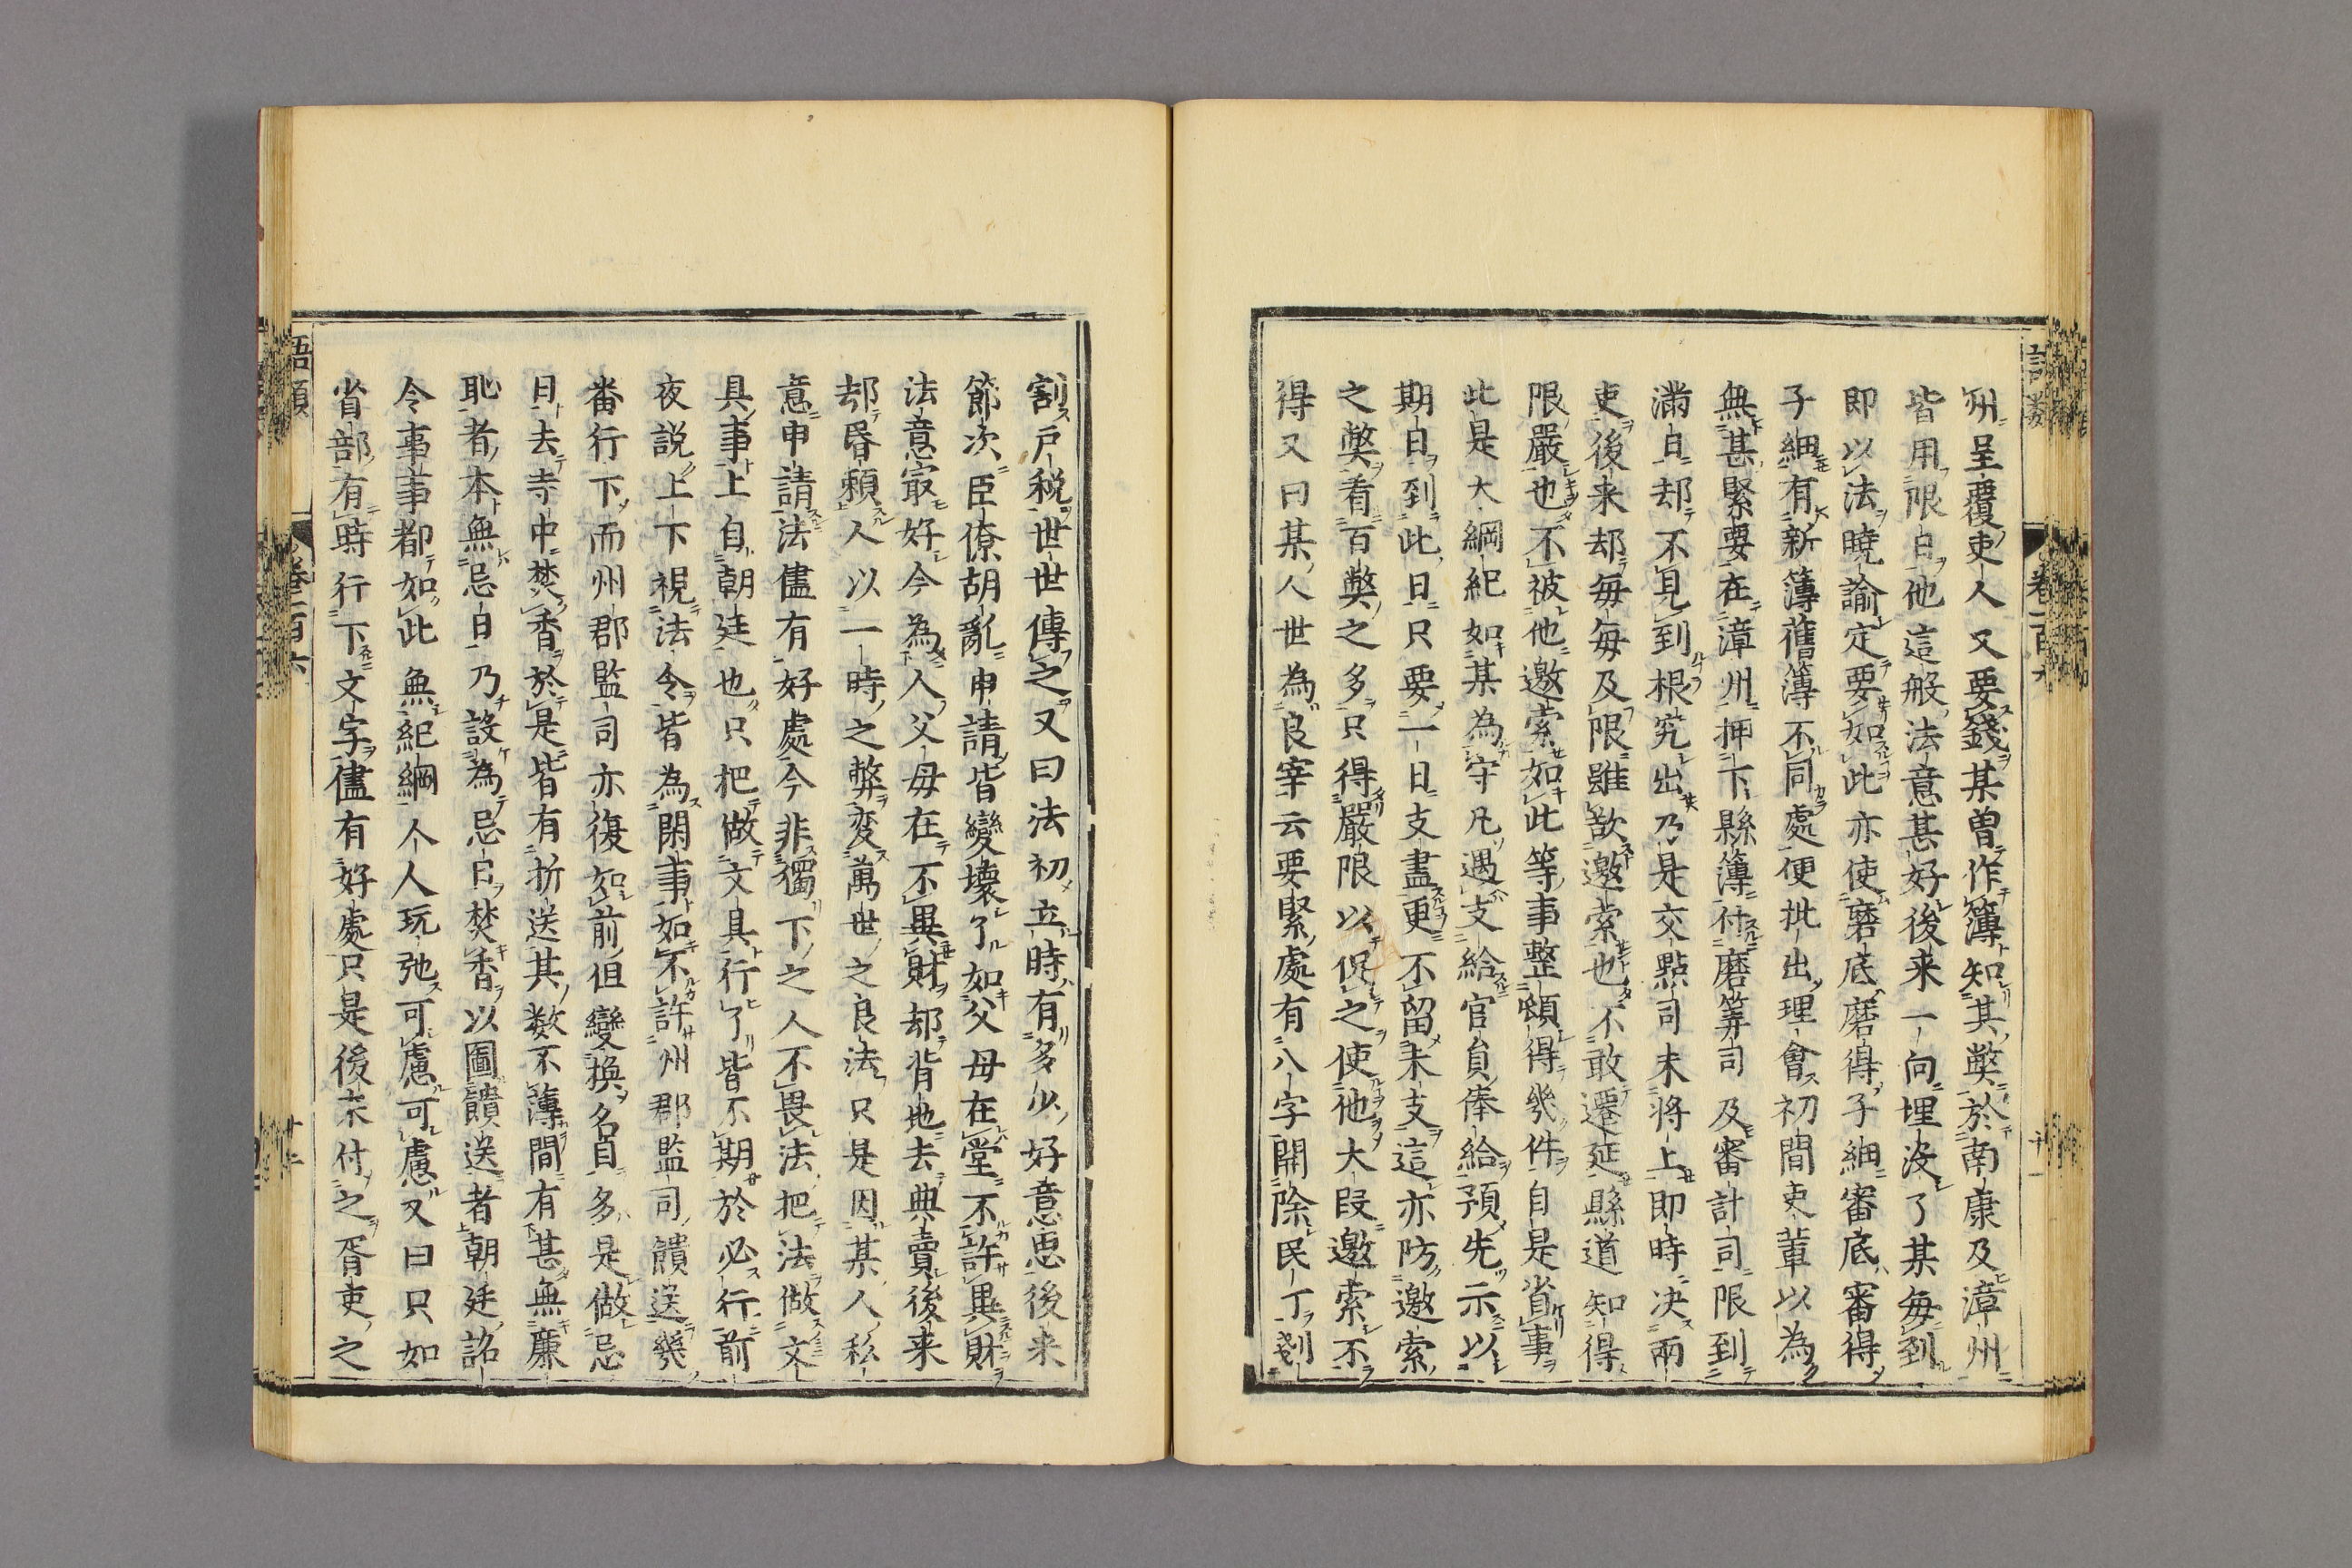 州呈覆吏人又要錢某曽作簿知其弊於南康及漳州
皆用限日他這般法意甚好後来一向埋没了某毎到
即以法曉諭定要如此亦使磨底磨得子細審底審得
子細有新簿舊簿不同處便批出理會初間吏輩以為
無甚緊要在漳州押下縣簿付磨筭司及審計司限到
滿日却不見到根究出乃是交點司未將上即時决兩
吏後来却毎毎及限雖欲邀索也不敢遷延縣道知得
限嚴也不被他邀索如此等事整頓得幾件自是省事
此是大綱紀如某為守凡遇支給官員俸給預先示以
期日到此日只要一日支盡更不留未支這亦防邀索
之弊看百弊之多只得嚴限以促之使他大段邀索不
得又曰某人世為良宰云要緊處有八字開除民丁刬
割戸税世世傳之又曰法初立時有多少好意思後来
節次臣僚胡亂申請皆變壞了如父母在堂不許異財
法意㝡好今為人父母在不異財却背地去典賣後来
却昏頼人以一時之弊変萬世之良法只是因某人私
意申請法儘有好處今非獨下之人不畏法把法做文
具事上自朝廷也只把做文具行了皆不期於必行前
夜説上下視法令皆為閑事如不許州郡監司饋送幾
畨行下而州郡監司亦復如前但變換名目多是做忌
日去寺中焚香於是皆有折送其数不薄間有甚無廉
恥者本無忌日乃設為忌日焚香以圖饋送者朝廷詔
令事事都如此無紀綱人人玩弛可慮可慮又曰只如
省部有時行下文字儘有好處只是後来付之胥吏之
語類
卷一百六
十二
十一